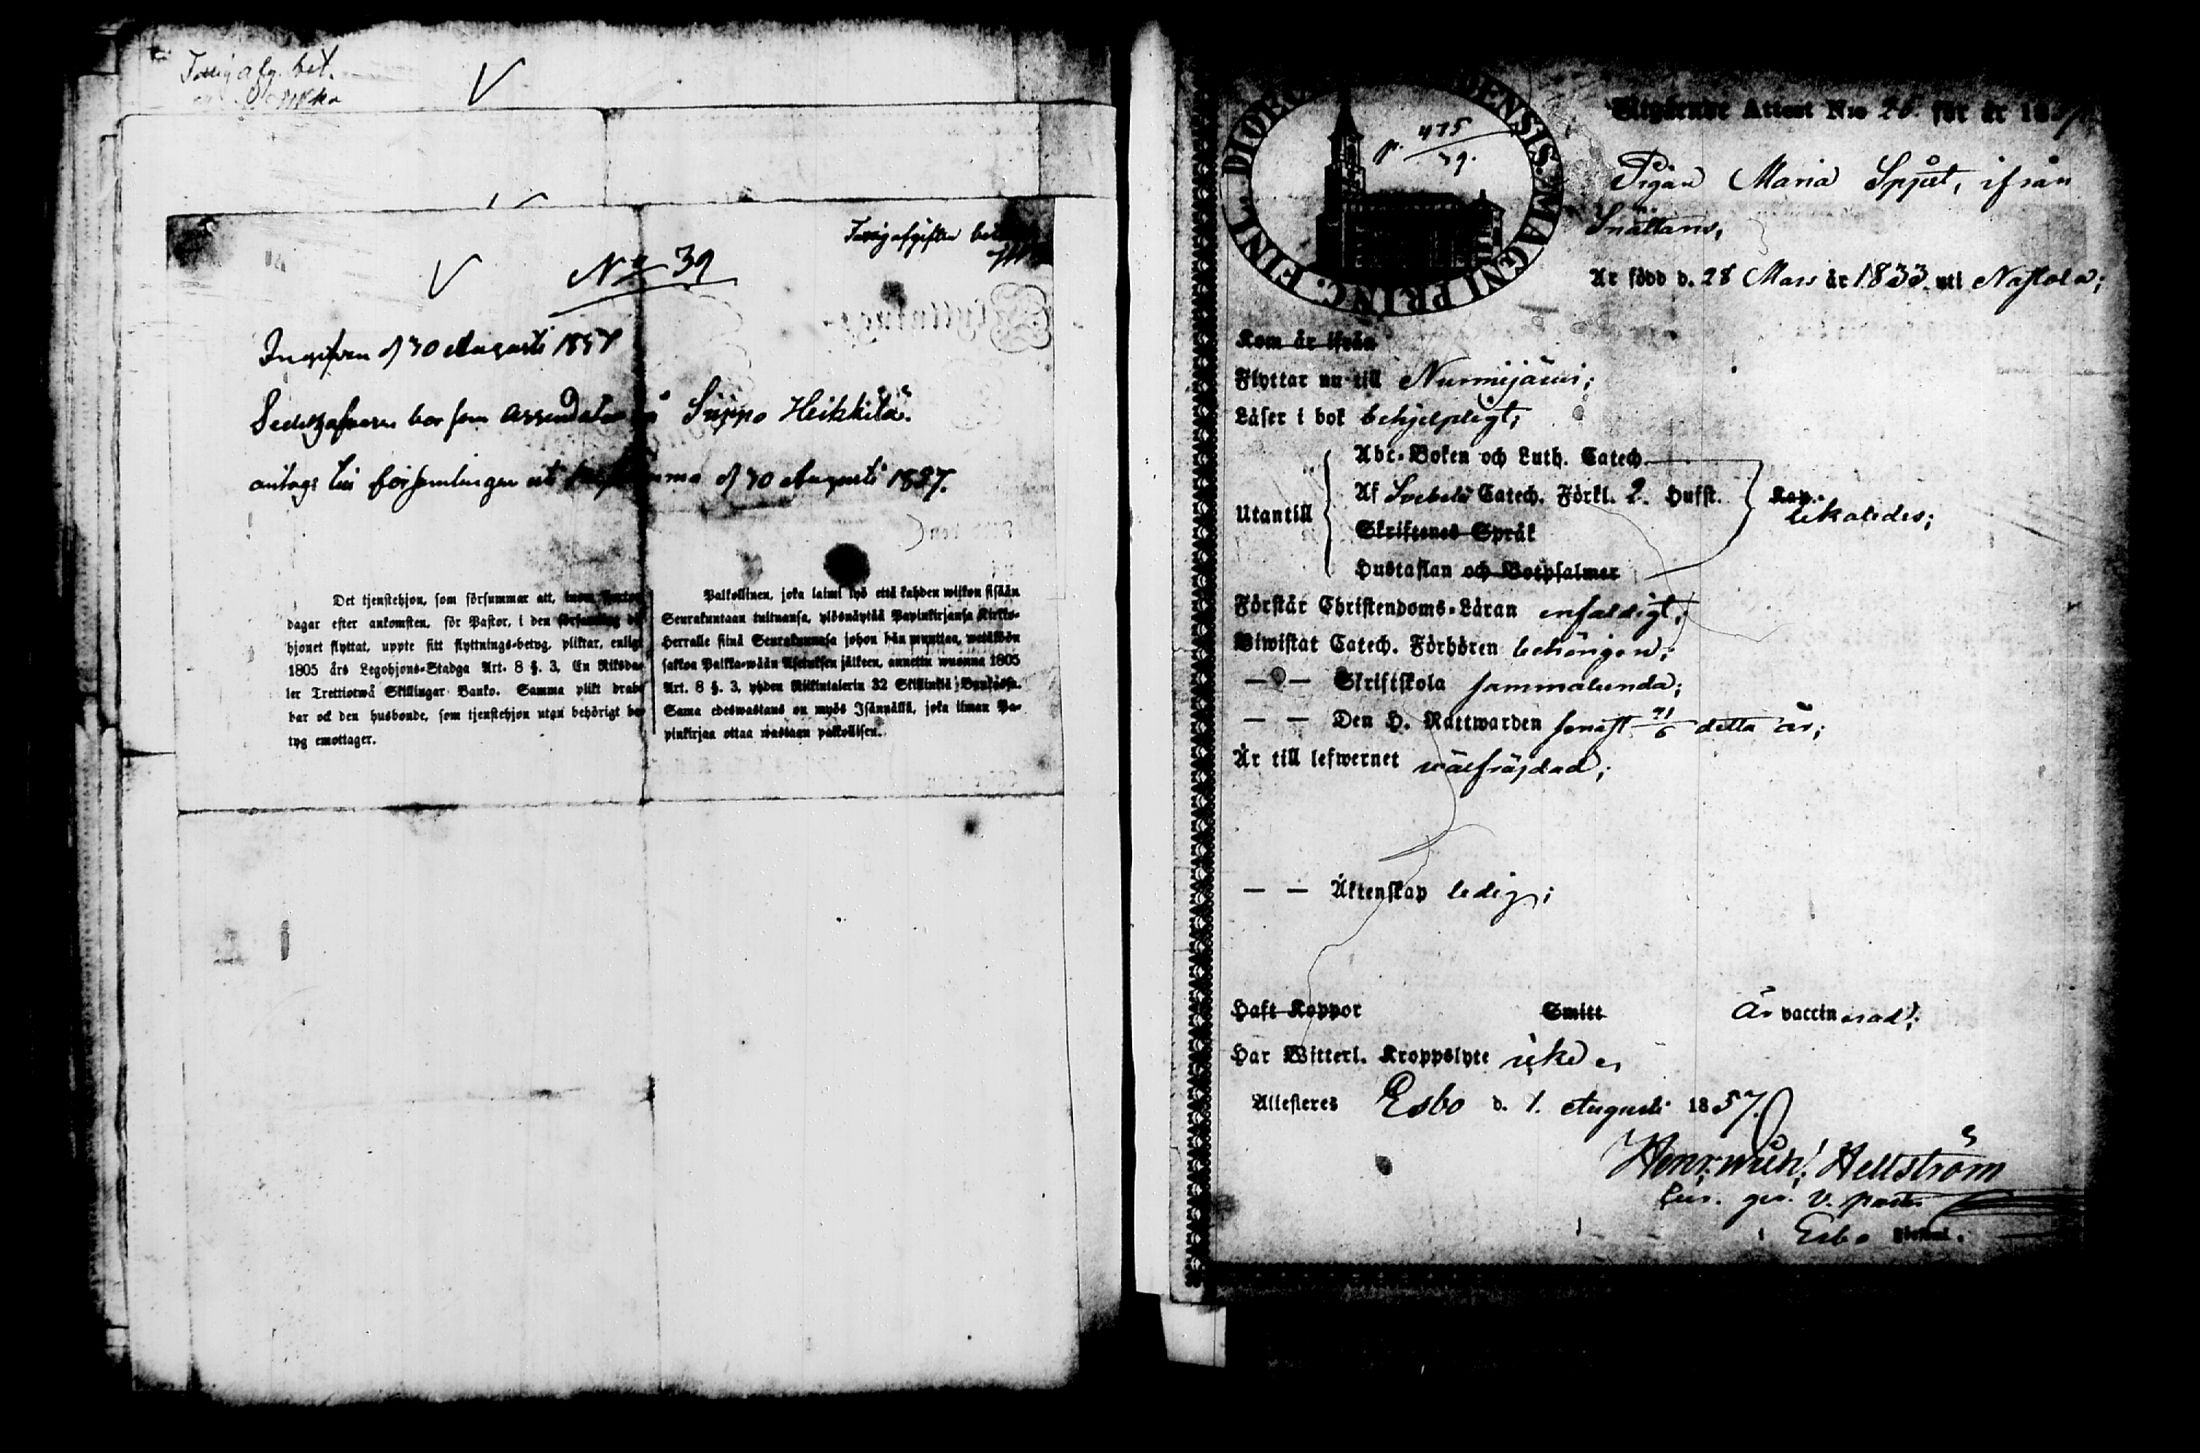 Intygafg. bet.
V
Intygafgiften
V
No 39
Ingifven d 30 Augusti 1857
Sedelhafvaren bor som Arrendator på Suppo Heikkilä.
antags till församlingen d 30 Augusti 1857.
Det tjenstehjon, som försummar att,
dagar efter ankomsten, för Pastor, i den församling
hjonet flyttat, uppte sitt flyttnings-betyg, pliktar, enligt
1805 års Legohjons-Stadga Art. 8 §. 3, En Riksda-
ler Trettiotwå Skillingar Banko. Samma plikt drab-
bar ock den husbonde, som tjenstehjon utan behörigt be-
tyg emottager.
Palkollinen, joka laimi lyö että kahden wiikon sisään
Seurakuntaan tultuansa, ylösnäyttää Papinkirjansa Kirkko-
Herralle siinä Seurakunnasa johon hän muuttaa, wetäköön
sakkoa Palkka-wään Asetuksen jälkeen, annettu wuonna 1805
Art. 8 §. 3, yhden Riikintalerin 32 Skillinkiä Bankossa.
Sama edeswastaus on myös Isännällä, joka ilman Pa-
pinkirjaa ottaa wastaan palkollisen.
DIOEC ENSIS. MAGNI PRINC. FINL.
p. 475
39.
Utgående Attest N:o 26 för år 185
Pigan Maria Spjut, ifrån
Snällans,
Är född d. 28 Mars år 1833 uti Nastola;
Kom år ifrån
Flyttar nu till Nurmijärvi;
Läser i bok behjelpligt;
Utantill
Abc-Boken och Luth. Catech.
Af Svebelii Catech. Förkl. 2. Hufst.
Skriftenes Språk
Hustaflan och Botpsalmer
Kap.
likaledes;
Förstår Christendoms-Läran enfaldigt;
Biwistat Catech. Förhören behörigen;
— — Skriftskola sammalunda;
— — Den H. Nattwarden senast 21/6 detta år;
Är till lefwernet välfräjdad;
— — Äktenskap ledig;
Haft Koppor Smitt Är vaccinerad;
Har Witterl. Kroppslyte icke
Attesteres Esbo d. 1. Augusti 1857.
Henr. Wilh. Hellström
V. past.
Esbo